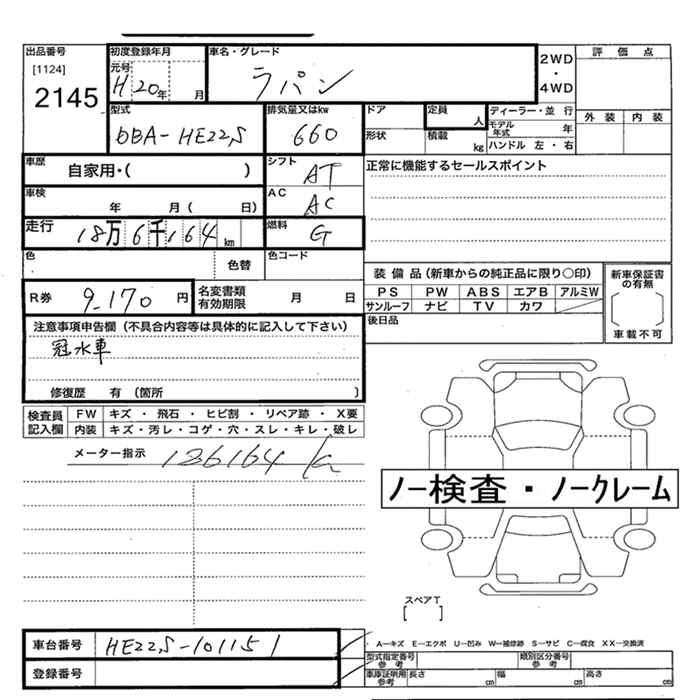 出品番号 初度登録年月 車名・グレード 2WD・4WD 評価点
[1124] 元号
2145 H20年 月 ラパン
型式 排気量又はkw ドア 定員 人 ディーラー・並行 外装 内装
DBA-HE22S 660 形状 積載 kg モデル年式 年
ハンドル 左・右
車歴 自家用・( ) シフト AT 正常に機能するセールスポイント
車検 年 月( 日) AC AC
走行 18万6千164km 燃料 G
色 色替 色コード
装備品(新車からの純正品に限り○印) 新車保証書の有無
R券 9,170円 名変書類有効期限 月 日 PS PW ABS エアB アルミW
サンルーフ ナビ TV カワ 車載不可
注意事項申告欄(不具合内容等は具体的に記入して下さい) 後日品
冠水車
修復歴 有(箇所 )
検査員記入欄 FW キズ・飛石・ヒビ割・リペア跡・X要
内装 キズ・汚レ・コゲ・穴・スレ・キレ・破レ
メーター指示 186164km
ノー検査・ノークレーム
スペアT
[ ]
車台番号 HE22S-101151 A―キズ E―エクボ U―凹み W―補修跡 S―サビ C―腐食 XX―交換済
型式指定番号 参考 類別区分番号 参考
登録番号 車庫証明用参考 長さ cm 幅 cm 高さ cm